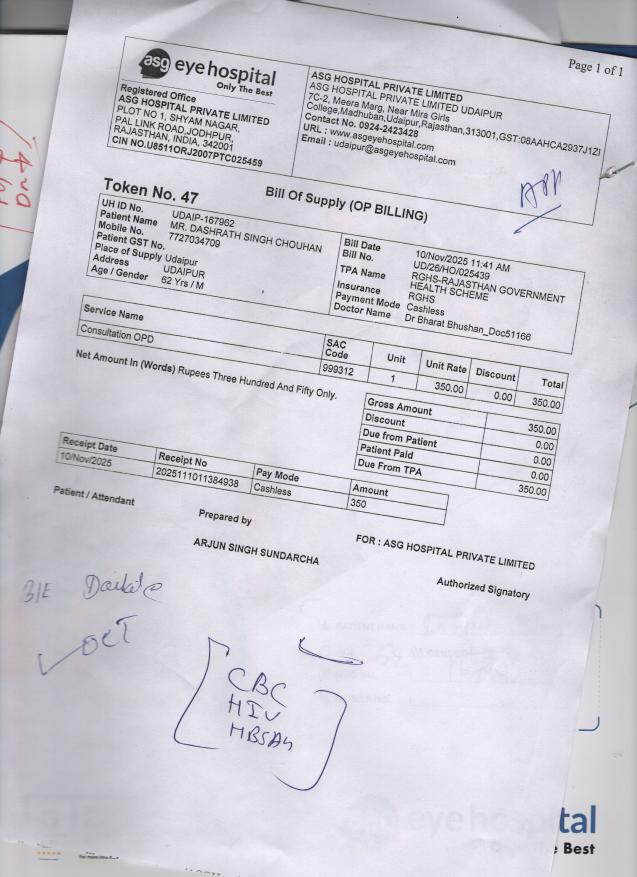 Page 1 of 1
asg eye hospital
Only The Best
Registered Office
ASG HOSPITAL PRIVATE LIMITED
PLOT NO 1, SHYAM NAGAR,
PAL LINK ROAD,JODHPUR,
RAJASTHAN, INDIA, 342001
CIN NO.U8511ORJ2007PTC025459
ASG HOSPITAL PRIVATE LIMITED
ASG HOSPITAL PRIVATE LIMITED UDAIPUR
7C-2, Meera Marg, Near Mira Girls
College,Madhuban,Udaipur,Rajasthan,313001,GST:08AAHCA2937J1ZI
Contact No. 0924-2423428
URL : www.asgeyehospital.com
Email : udaipur@asgeyehospital.com
Token No. 47
Bill Of Supply (OP BILLING)
UH ID No. UDAIP-167962
Patient Name MR. DASHRATH SINGH CHOUHAN
Mobile No. 7727034709
Patient GST No.
Place of Supply Udaipur
Address UDAIPUR
Age / Gender 62 Yrs / M
Bill Date 10/Nov/2025 11:41 AM
Bill No. UD/26/HO/025439
TPA Name RGHS-RAJASTHAN GOVERNMENT
HEALTH SCHEME
Insurance RGHS
Payment Mode Cashless
Doctor Name Dr Bharat Bhushan_Doc51166
Service Name SAC Code Unit Unit Rate Discount Total
Consultation OPD 999312 1 350.00 0.00 350.00
Net Amount In (Words) Rupees Three Hundred And Fifty Only.
Gross Amount 350.00
Discount 0.00
Due from Patient 0.00
Patient Paid 0.00
Due From TPA 350.00
Receipt Date Receipt No Pay Mode Amount
10/Nov/2025 2025111011384938 Cashless 350
Patient / Attendant
Prepared by
ARJUN SINGH SUNDARCHA
FOR : ASG HOSPITAL PRIVATE LIMITED
Authorized Signatory
OCT
CBC
HIV
HBSAg
eye hospital
Best